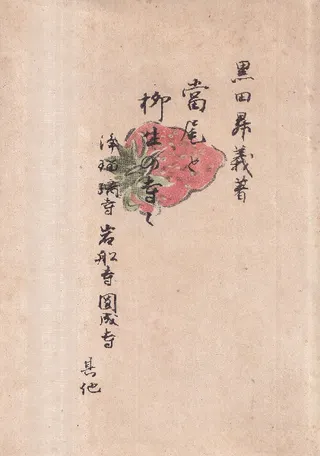 黒田曻義著
當尾と
柳生の寺々
浄瑠璃寺 岩船寺 圓成寺
其他